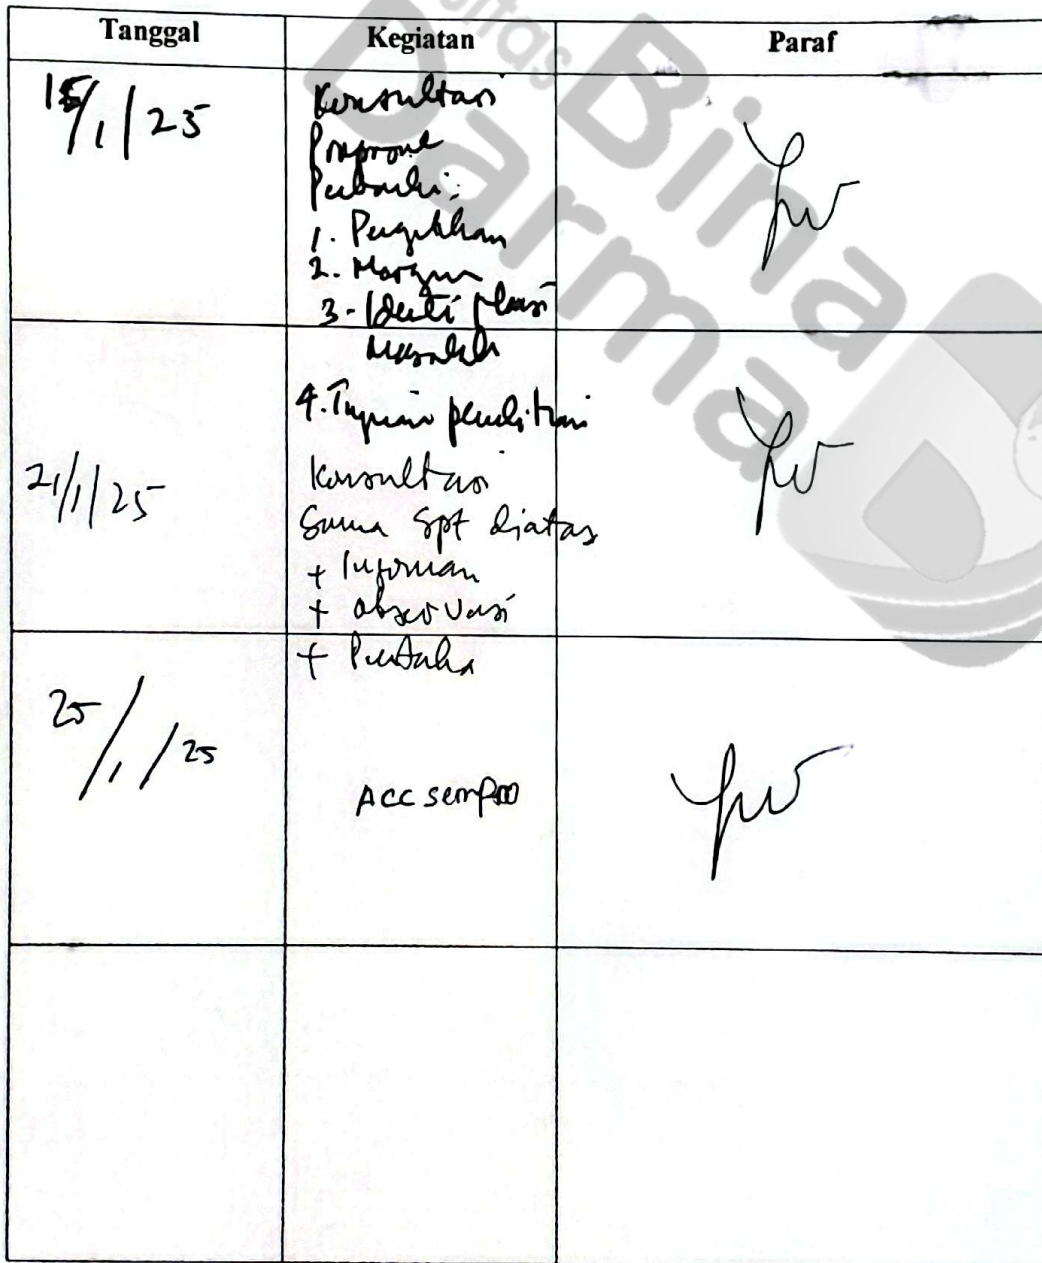 Tanggal Kegiatan Paraf
15/1/25
Konsultasi
Proposal
Perbaiki:
1. Pengetikan
2. Margin
3. Identifikasi
Masalah
4. Tujuan penelitian
21/1/25
Konsultasi
Sama spt diatas
+ Informan
+ observasi
+
25/1/25
ACC sempro
Bina
Darma